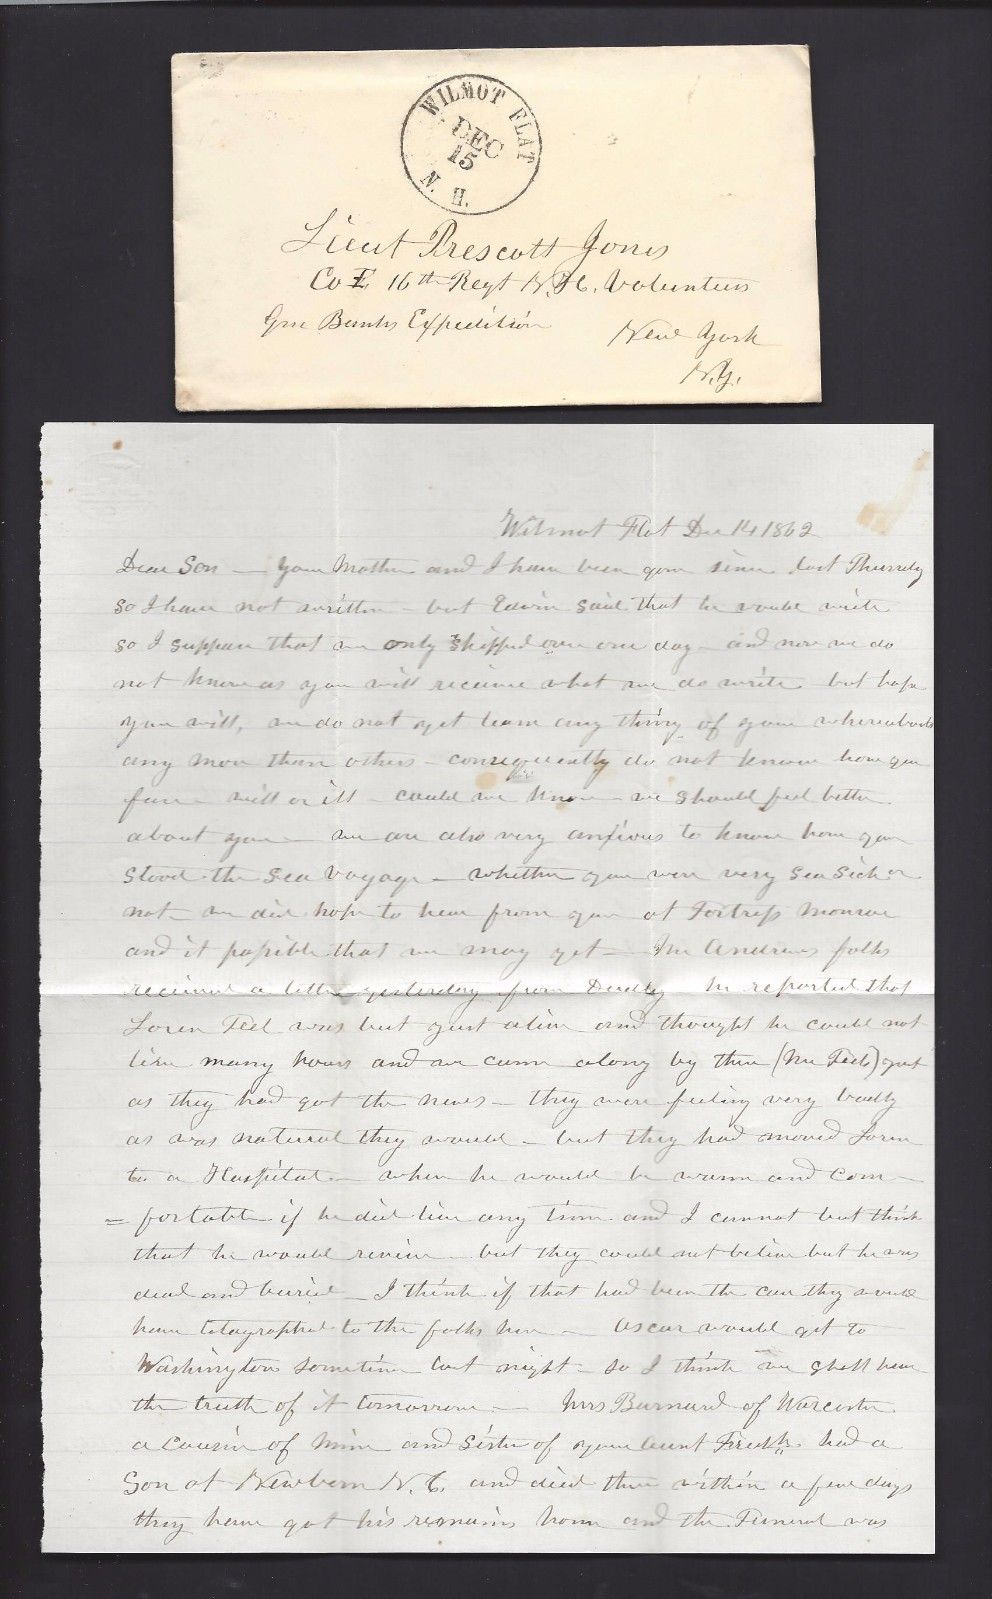 WILMOT FLAT
DEC
15
N. H.
Lieut Prescott Jones
Co E 16th Regt N.H. Volunteers
Gen Banks Expedition
New York
N.Y.
Wilmot Flat Dec 14 1862
Dear Son – Your Mother and I have been gone since last Thursday
so I have not written – but Edwin said that he would write
so I suppose that we only skipped over one day – and now we do
not know as you will receive what we do write but hope
you will, we do not get learn any thing of your whereabouts
any more than others – consequently do not know how you
fare – well or ill – could we know – we should feel better
about you – we are also very anxious to know how you
stood the Sea Voyage – whether you were very Sea Sick or
not – we did hope to hear from you at Fortress Monroe
and it possible that we may yet – Mr Andrews folks
received a letter yesterday from Dudley he reported that
Loren Teel was but just alive and thought he could not
live many hours and we came along by there (Mr Teels) just
as they had got the news – they were feeling very badly
as was natural they would – but they had moved Loren
to a Hospital – where he would be warm and com–
= fortable if he did live any time and I cannot but think
that he would revive – but they could not believe but he was
dead and buried – I think if that had been the case they would
have telegraphed to the folks here – Oscar would get to
Washington sometime last night – so I think we shall hear
the truth of it tomorrow – Mrs Barnard of Worcester
a cousin of mine and Sister of your Aunt had a
Son at Newbern N.C. and died there within a few days
they have got his remains home and the Funeral was